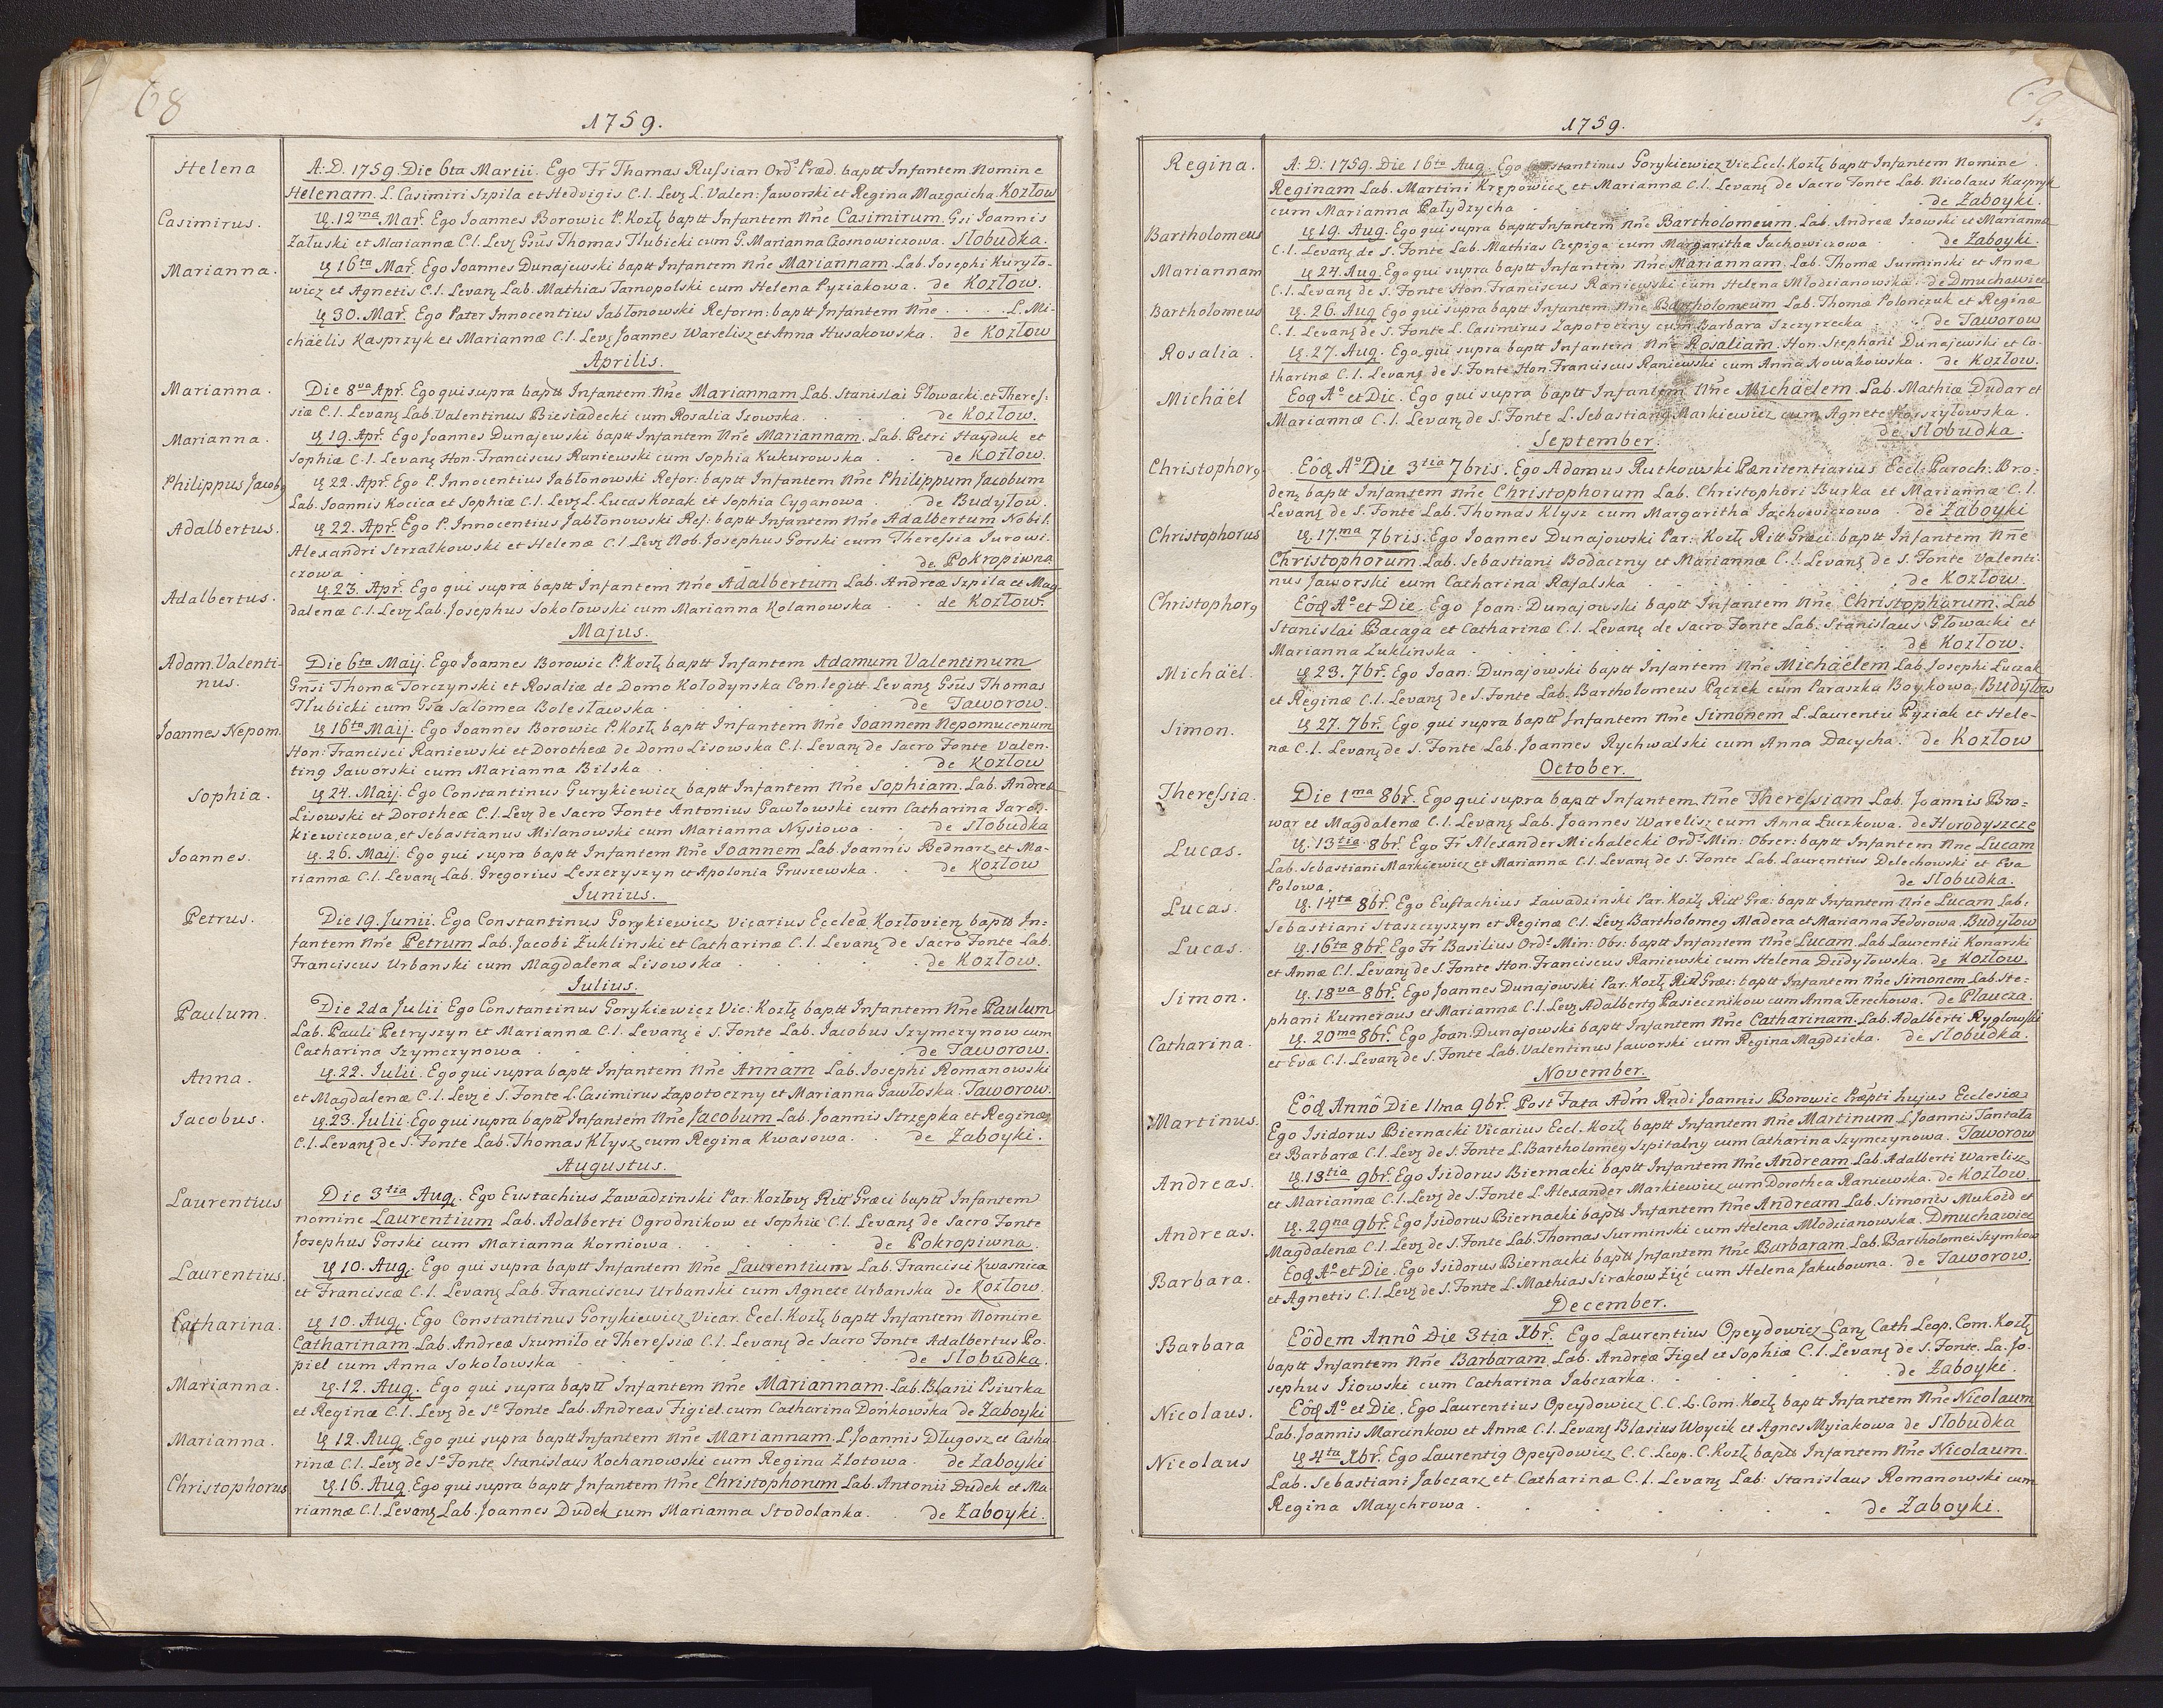 68
1759.
Helena
A: D. 1759. Die 6ta Martii. Ego Fr Thomas Russian Ord.s Præd. baptt Infantem Nomine
Helenam. L. Casimiri Szpila et Hedvigis C. l. Levȝ L. Valen: Jaworski et Regina Mazgaicha. Kozłow
Casimirus.
ıȝ. 12ma Mar̃. Ego Joannes Borowic P. Kozł̨ baptt Infantem Nñe Casimirum. Gsi Joannis
Załuski et Mariannæ C. l. Levȝ Gsũs Thomas Tłubicki cum G. Marianna Czosnowiczowa. Słobudka.
Marianna.
ıȝ 16ta Mar̃. Ego Joannes Dunajewski baptt Infantem Nñe Mariannam. Lab. Josephi Kuryło-
wicz et Agnetis C. l. Levanȝ Lab. Mathias Tarnopolski cum Helena Pyziakowa. de Kozłow.
ıȝ 30. Mar̃. Ego Pater Innocentius Jabłonowski Reform: baptt Infantem Nñe . . . . L. Mi-
chäelis Kasprzyk et Mariannæ C. l. Levȝ Joannes Warelisz et Anna Husakowska. de Kozłow
Aprilis.
Marianna.
Die 8va Apr̃. Ego qui supra baptt Infantem Nñe Mariannam Lab. Stanislai Głowacki et Theres-
siæ C. l. Levanȝ Lab. Valentinus Biesiadecki cum Rosalia Izowska. . . de Kozłow.
Marianna.
ıȝ 19. Apr̃. Ego Joannes Dunajewski baptt Infantem Nñe Mariannam. Lab. Petri Hayduk et
Sophiæ C. l. Levanȝ Hon. Franciscus Raniewski cum Sophia Kukurowska . . de Kozłow.
Philippus Jacobȝ
ıȝ 22. Apr̃. Ego P. Innocentius Jabłonowski Refor: baptt Infantem Nñe Philippum Jacobum
Lab. Joannis Kocica et Sophiæ C. l. Levȝ L. Lucas Kozak et Sophia Cyganowa . de Budyłow.
Adalbertus.
ıȝ 22. Apr̃. Ego P. Innocentius Jabłonowski Ref: baptt Infantem Nñe Adalbertum Nobil.
Alexandri Strzałkowski et Helenæ C. l. Levȝ Nob. Josephus Gorski cum Theressia Jurowi-
czowa . . . . de Pokropiwna
Adalbertus.
ıȝ 23. Apr̃. Ego qui supra baptt Infantem Nñe Adalbertum Lab. Andreæ Szpila et Mag-
dalenæ C. l. Levȝ Lab. Josephus Sokołowski cum Marianna Kolanowska . . de Kozłow.
Majus.
Adam. Valenti-
nus.
Die 6ta Maij. Ego Joannes Borowic P. Kozł̨ baptt Infantem Adamum Valentinum
Gñsi Thomæ Torczynski et Rosaliæ de Domo Kołodynska Con. legitt. Levanȝ Gsũs Thomas
Tłubicki cum Gsa Salomea Bolesławska . . . . de Taworow.
Joannes Nepom.
ıȝ 16ta Maij. Ego Joannes Borowic P. Kozł̨ baptt Infantem Nñe Joannem Nepomucenum
Hon: Francisci Raniewski et Dorotheæ de Domo Lisowska C. l. Levanȝ de Sacro Fonte Valen-
tinȝ Jaworski cum Marianna Bilska . . . . de Kozłow
Sophia.
ıȝ 24. Maij. Ego Constantinus Gurykiewicz baptt Infantem Nñe Sophiam. Lab. Andreæ
Lisowski et Dorotheæ C. l. Levȝ de Sacro Fonte Antonius Gawłowski cum Catharina Jarec-
kiewiczowa, et Sebastianus Milanowski cum Marianna Nysiowa . . de Słobudka
Joannes.
ıȝ. 26. Maij. Ego qui supra baptt Infantem Nñe Joannem Lab. Joannis Bednarz et Ma-
riannæ C. l. Levanȝ Lab. Gregorius Leszczyszyn et Apolonia Gruszewska . . de Kozłow
Junius.
Petrus.
Die 19. Junii. Ego Constantinus Gorykiewicz Vicarius Eccleæ Kozłovienȝ baptt In-
fantem Nñe Petrum Lab. Jacobi Żuklinski et Catharinæ C. l. Levanȝ de Sacro Fonte Lab.
Franciscus Urbanski cum Magdalena Lisowska . . . . de Kozłow.
Julius.
Paulum.
Die 2da Julii Ego Constantinus Gorykiewicz Vic: Kozł̨ baptt Infantem Nñe Paulum
Lab. Pauli Petryszyn et Mariannæ C. l. Levanȝ è S. Fonte Lab. Jacobus Szymczynow cum
Catharina Szymczynowa . . . . de Taworow.
Anna.
ıȝ. 22. Julii. Ego qui supra baptt Infantem Nñe Annam Lab. Josephi Romanowski
et Magdalenæ C. l. Levȝ è S. Fonte L. Casimirus Zapotoczny et Marianna Gawłoska. Taworow.
Jacobus.
ıȝ. 23. Julii. Ego qui supra baptt Infantem Nñe Jacobum Lab. Joannis Strzępka et Reginæ
C. l. Levanȝ de S. Fonte Lab. Thomas Kłysz cum Regina Kwasowa. . de Zaboyki.
Augustus.
Laurentius
Die 3tia Aug. Ego Eustachius Zawadzinski Par. Kozłovȝ Ritt Græci baptt Infantem
nomine Laurentium Lab. Adalberti Ogrodnikow et Sophiæ C. l. Levanȝ de Sacro Fonte
Josephus Gorski cum Marianna Korniowa . . . . de Pokropiwna.
Laurentius.
ıȝ 10. Aug. Ego qui supra baptt Infantem Nñe Laurentium Lab. Francisci Kwasnica
et Franciscæ C. l. Levanȝ Lab. Franciscus Urbanski cum Agnete Urbanska de Kozłow.
Catharina.
ıȝ 10. Aug. Ego Constantinus Gorykiewicz Vicar. Eccl. Kozł̨ baptt Infantem Nomine
Catharinam. Lab. Andreæ Szumiło et Theressiæ C. l. Levanȝ de Sacro Fonte Adalbertus Po-
piel cum Anna Sokołowska . . . . de Słobudka.
Marianna.
ıȝ. 12. Aug. Ego qui supra baptt Infantem Nñe Mariannam. Lab. Blasii Psiurka
et Reginæ C. l. Levȝ de So Fonte Lab. Andreas Figiel cum Catharina Dońkowska de Zaboyki
Marianna.
ıȝ 12. Aug. Ego qui supra baptt Infantem Nñe Mariannam. L. Joannis Długosz et Catha-
rinæ C. l. Levȝ de So Fonte Stanislaus Kochanowski cum Regina Złotowa. de Zaboyki
Christophorus
ıȝ. 16. Aug. Ego qui supra baptt Infantem Nñe Christophorum Lab. Antonii Dudek et Ma-
riannæ C. l. Levanȝ Lab. Joannes Dudek cum Marianna Stodolanka. . de Zaboyki.
69
1759.
Regina.
A: D: 1759. Die 16ta Aug. Ego Constantinus Gorykiewicz Vic Eccl. Kozł̨ baptt Infantem Nomine
Reginam Lab. Martini Krępowicz et Mariannæ C. l. Levanȝ de Sacro Fonte Lab. Nicolaus Kasprzyk
cum Marianna Pałydzycha . . . . de Zaboyki.
Bartholomeus
ıȝ 19. Aug. Ego qui supra baptt Infantem Nñe Bartholomeum. Lab. Andreæ Izowski et Mariannæ
C. l. Levanȝ de S. Fonte Lab. Mathias Czepiga cum Margaritha Jachowiczowa . . de Zaboyki.
Mariannam
ıȝ 24. Aug. Ego qui supra baptt Infantem Nñe Mariannam. Lab. Thomæ Surminski et Annæ
C. l. Levanȝ de S. Fonte Hon. Franciscus Raniewski cum Helena Młodzianowska. de Dmuchawiec
Bartholomeus
ıȝ. 26. Aug Ego qui supra baptt Infantem Nñe Bartholomeum Lab. Thomæ Połonczuk et Reginæ
C. l. Levanȝ de S. Fonte L. Casimirus Zapotoczny cum Barbara Szczyrzecka . . de Taworow
Rosalia.
ıȝ. 27. Aug. Ego qui supra baptt Infantem Nñe Rosaliam. Hon. Stephani Dunajewski et Ca-
tharinæ C. l. Levanȝ de S. Fonte Hon. Franciscus Raniewski cum Anna Nowakowska. de Kozłow.
Michäél
Eoq Ao et Die. Ego qui supra baptt Infantem Nñe Michäelem. Lab. Mathiæ Dudar et
Mariannæ C. l. Levanȝ de S. Fonte L. Sebastianȝ Markiewicz cum Agnete Korszyłowska.
de Słobudka.
September.
Christophorȝ
Eôq Ao Die 3tia 7bris. Ego Adamus Rutkowski Pænitentiarius Eccl: Paroch: Bro-
denȝ baptt Infantem Nñe Christophorum Lab. Christophori Burka et Mariannæ C. l.
Levanȝ de S. Fonte Lab. Thomas Kłysz cum Margaritha Jachowiczowa . de Zaboyki
Christophorus
ıȝ. 17ma 7bris. Ego Joannes Dunajowski Par: Kozł̨ Ritt Græci baptt Infantem Nñe
Christophorum. Lab. Sebastiani Bodaczny et Mariannæ C. l. Levanȝ de S. Fonte Valenti-
nus Jaworski cum Catharina Rafalska . . . . de Kozłow.
Christophorȝ
Eôq Ao et Die. Ego Joan: Dunajowski baptt Infantem Nñe Christophorum. Lab
Stanislai Bacaga et Catharinæ C. l. Levanȝ de Sacro Fonte Lab. Stanislaus Głowacki et
Marianna Żuklinska . . . . de Kozłow.
Michäél.
ıȝ 23. 7br̃. Ego Joan: Dunajowski baptt Infantem Nñe Michäelem Lab. Josephi Łuczak
et Reginæ C. l. Levanȝ de S. Fonte Lab. Bartholomeus Pączek cum Paraszka Boykowa. Budyłow
Simon.
ıȝ 27. 7br̃. Ego qui supra baptt Infantem Nñe Simonem L. Laurentii Pyziak et Hele-
næ C. l. Levanȝ de S. Fonte Lab. Joannes Rychwalski cum Anna Dacycha. de Kozłow
October.
Theressia.
Die 1ma 8br̃. Ego qui supra baptt Infantem Nñe Theressiam Lab. Joannis Bro-
war et Magdalenæ C. l. Levanȝ Lab. Joannes Warelisz cum Anna Łuczkowa. de Horodyszcze
Lucas.
ıȝ. 13tia 8br̃. Ego Fr Alexander Michalecki Ords Min: Obser: baptt Infantem Nñe Lucam
Lab. Sebastiani Markiewicz et Mariannæ C. l. Levanȝ de S. Fonte Lab. Laurentius Delechowski et Eva
Polowa. de Słobudka.
Lucas.
ıȝ. 14ta 8br̃. Ego Eustachius Zawadzinski Par. Kozł̨ Ritt Græ: baptt Infantem Nñe Lucam Lab.
Sebastiani Staszczyszyn et Reginæ C. l. Levȝ Bartholomeȝ Madera et Marianna Fedorowa. Budyłow
Lucas.
ıȝ. 16ta 8br̃. Ego Fr Basilius Ords Min: Obs: baptt Infantem Nñe Lucam. Lab Laurentii Konarski
et Annæ C. l. Levanȝ de S. Fonte Hon. Franciscus Raniewski cum Helena Dudyłowska. de Kozłow
Simon.
ıȝ. 18va 8br̃. Ego Joannes Dunajowski Par. Kozł̨ Ritt Græc: baptt Infantem Nñe Simonem Lab. Ste-
phani Kumeraus et Mariannæ C. l. Levȝ Adalbertȝ Pasiecznikow cum Anna Terechowa. de Płaucza.
Catharina.
ıȝ. 20ma 8br̃. Ego Joan. Dunajowski baptt Infantem Nñe Catharinam. Lab. Adalberti Rygłowski
et Evæ C. l. Levanȝ de S. Fonte Lab. Valentinus Jaworski cum Regina Magdzicka. de Słobudka.
November.
Martinus.
Eôq Annô Die 11ma 9br̃. Post Fata Adm̃ Rñdi Joannis Borowic Præpti hujus Ecclesiæ
Ego Isidorus Biernacki Vicarius Eccl. Kozł̨ baptt Infantem Nñe Martinum. L Joannis Tantała
et Barbaræ C. l. Levȝ de S. Fonte L. Bartholomeȝ Szpitalny cum Catharina Szymczynowa. Taworow
Andreas.
ıȝ. 13tia 9br̃. Ego Isidorus Biernacki baptt Infantem Nñe Andream. Lab. Adalberti Warelisz
et Mariannæ C. l. Levȝ de S. Fonte L. Alexander Markiewicz cum Dorothea Raniewska. de Kozłow
Andreas.
ıȝ. 29na 9br̃. Ego Isidorus Biernacki baptt Infantem Nñe Andream Lab. Simonis Mukoid et
Magdalenæ C. l. Levȝ de S. Fonte Lab. Thomas Surminski cum Helena Młodzianowska. Dmuchawiec
Barbara.
Eoq Ao et Die. Ego Isidorus Biernacki baptt Infantem Nñe Barbaram. Lab. Bartholomei Szymkow
et Agnetis C. l. Levȝ de S. Fonte L. Mathias Sirakow Zięć cum Helena Jakubowna. de Taworow.
December.
Barbara
Eôdem Annô Die 3tia Xbr̃. Ego Laurentius Opeydowicz Canȝ Cath Leop. Com. Kozł̨
baptt Infantem Nñe Barbaram. Lab. Andreæ Figel et Sophiæ C. l. Levanȝ de S. Fonte. La. Jo-
sephus Iżowski cum Catharina Jabczarka. . . . . de Zaboyki.
Nicolaus.
Eôq Ao et Die. Ego Laurentius Opeydowicz C. C. L. Com. Kozł̨ baptt Infantem Nñe Nicolaum
Lab. Joannis Marcinkow et Annæ C. l. Levanȝ Blasius Woycik et Agnes Myiakowa de Słobudka
Nicolaus
ıȝ 4ta Xbr̃. Ego Laurentiȝ Opeydowicz C. C. Leop. C. Kozł̨ baptt Infantem Nñe Nicolaum.
Lab. Sebastiani Jabczarz et Catharinæ C. l. Levanȝ Lab: Stanislaus Romanowski cum
Regina Maychrowa . . . . de Zaboyki.